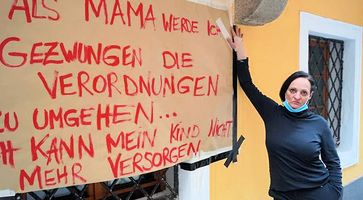 ALS MAMA WERDE ICH
GEZWUNGEN DIE
VERORDNUNGEN
ZU UMGEHEN...
ICH KANN MEIN KIND NICHT
MEHR VERSORGEN